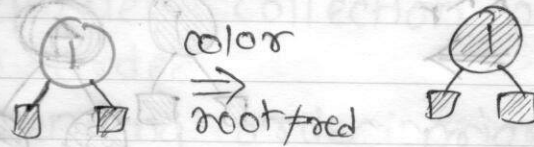 1 color 1
⇒
root ≠ red